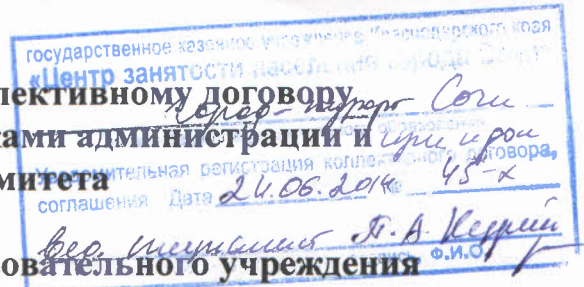 государственное казенное учреждение Краснодарского края
«Центр занятости населения города Сочи»
лективному договору
город-курорт Сочи
ками администрации и при
Уведомительная регистрация коллективного договора,
митета
соглашения Дата 24.06.2014 № 45-х
вед. специалист Т.А.
Ф.И.О.
овательного учреждения